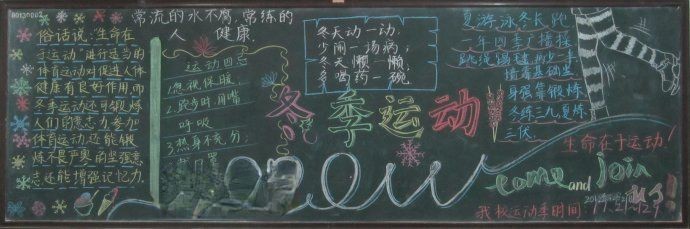 80130002
俗话说:"生命在
于运动"进行适当的
体育运动对促进人体
健康有良好作用,而
冬季运动还可锻炼
人们的意志力,参加
体育运动还能锻
炼不畏严寒的坚强意
志还能增强记忆力.
常流的水不腐,常练的
人 健康.
运动四忌
1.忽视保暖;
2.跑步时,用嘴
呼吸
3.热身不充分;
冬天动一动,
少闹一场病;
冬天懒一懒,
多喝药一碗
冬季运动
夏游泳冬长跑
一年四季广播操
跳绳踢毽
身强靠锻炼
冬练三九,夏炼
三伏.
生命在于运动!
come and join
我校运动季时间: